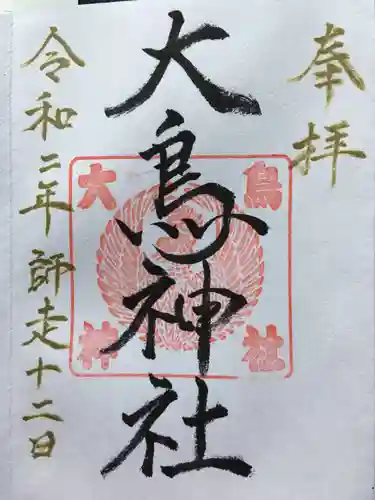 奉拝
大鳥神社
大鳥神社
令和二年師走十二日